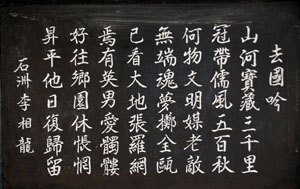 去國吟
山河寶藏三千里
冠帶儒風五百秋
何物文明媒老敵
無端魂夢擲全甌
已看大地張羅網
焉有英男愛髑髏
好往鄉園休悵惘
昇平他日復歸留
石洲 李相龍